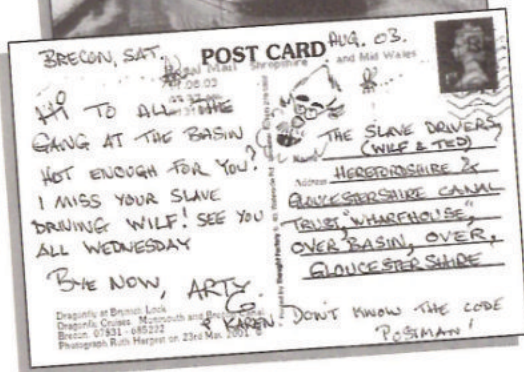 BRECON, SAT.
POST CARD
AUG. 03.
Royal Mail Shropshire
and Mid Wales
HI TO ALL THE
GANG AT THE BASIN
HOT ENOUGH FOR YOU?
I MISS YOUR SLAVE
DRIVING WILF! SEE YOU
ALL WEDNESDAY
BYE NOW, ARTY.
& KAREN
Dragonfly at Brynich Lock
Dragonfly Cruises - Monmouth and Brecon Canal
Brecon. 07831 - 685222
Photograph Ruth Hargest on 23rd Mar. 2001 ©
Name
THE SLAVE DRIVERS,
(WILF & TED)
Address HEREFORDSHIRE &
GLOUCESTERSHIRE CANAL
TRUST, "WHARFHOUSE",
OVER BASIN, OVER,
GLOUCESTERSHIRE
DON'T KNOW THE CODE
POSTMAN!